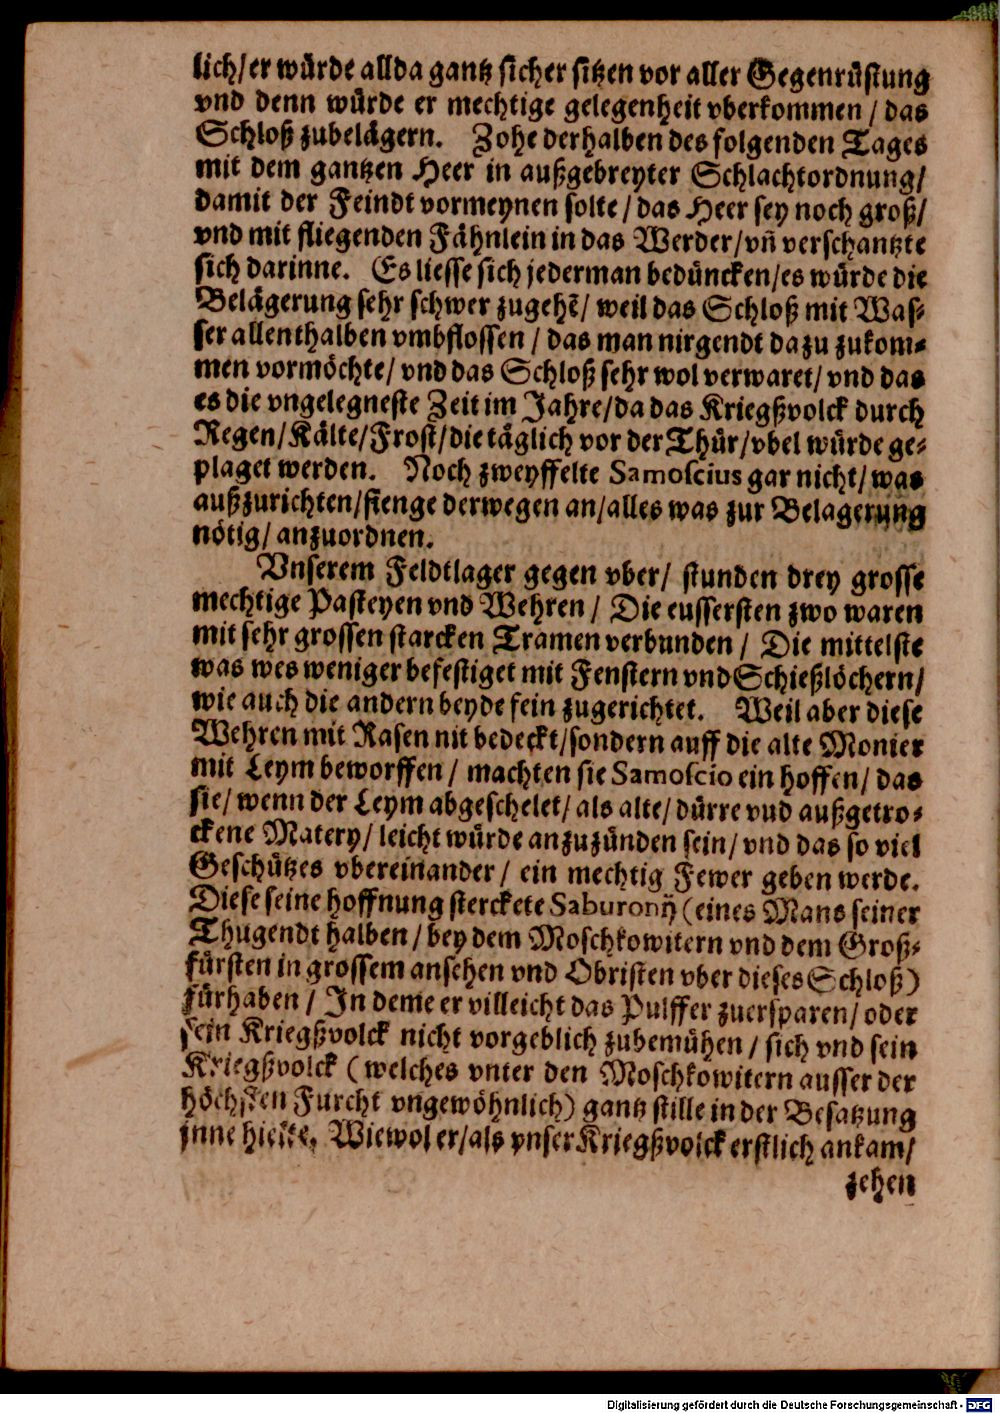 lich/er würde allda gantz sicher sitzen vor aller Gegenrüstung
vnd denn würde er mechtige gelegenheit vberkommen / das
Schloß zubelägern. Zohe derhalben des folgenden Tages
mit dem gantzen Heer in außgebreyter Schlachtordnung/
damit der Feindt vormeynen solte / das Heer sey noch groß/
vnd mit fliegenden Fähnlein in das Werder/vñ verschantzte
sich darinne. Es liesse sich jederman bedüncken/es würde die
Belägerung sehr schwer zugehẽ/ weil das Schloß mit Was-
ser allenthalben vmbflossen / das man nirgendt dazu zukom-
men vormöchte/ vnd das Schloß sehr wol verwaret/ vnd das
es die vngelegneste Zeit im Jahre/da das Kriegßvolck durch
Regen/Kälte/Frost/die täglich vor der Thür/vbel würde ge-
plaget werden. Noch zweyffelte Samoscius gar nicht/ was
außzurichten/fienge derwegen an/alles was zur Belagerung
nötig/ anzuordnen.
Vnserem Feldtlager gegen vber/ stunden drey grosse
mechtige Pasteyen vnd Wehren / Die eussersten zwo waren
mit sehr grossen starcken Tramen verbunden / Die mittelste
was wes weniger befestiget mit Fenstern vnd Schießlöchern/
wie auch die andern beyde fein zugerichtet. Weil aber diese
Wehren mit Rasen nit bedeckt/sondern auff die alte Monier
mit Leym beworffen / machten sie Samoscio ein hoffen / das
sie/ wenn der Leym abgeschelet/ als alte/ dürre vud außgetro-
ckene Matery/ leicht würde anzuzünden sein/ vnd das so viel
Geschützes vbereinander / ein mechtig Fewer geben werde.
Diese seine hoffnung sterckete Saburonij (eines Mans seiner
Thugendt halben / bey dem Moschkowitern vnd dem Groß-
fürsten in grossem ansehen vnd Obristen vber dieses Schloß)
fürhaben / In deme er villeicht das Pulffer zuersparen/ oder
sein Kriegßvolck nicht vorgeblich zubemühen / sich vnd sein
Kriegßvolck ( welches vnter den Moschkowitern ausser der
höchsten Furcht vngewöhnlich) gantz stille in der Besatzung
jnne hielte. Wiewol er/als vnser Kriegßvolck erstlich ankam/
zehen
Digitalisierung gefördert durch die Deutsche Forschungsgemeinschaft - DFG